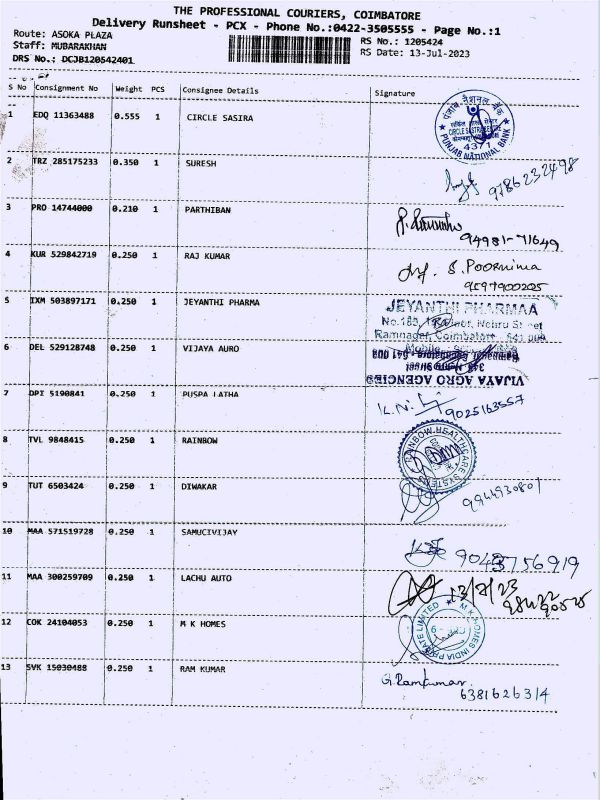 THE PROFESSIONAL COURIERS, COIMBATORE
Delivery Runsheet - PCX - Phone No.:0422-3505555 - Page No.:1
Route: ASOKA PLAZA
RS No.: 1205424
Staff: MUBARAKHAN
RS Date: 13-Jul-2023
DRS No.: DCJB120542401
S No Consignment No Weight PCS Consignee Details Signature
1 EDQ 11363488 0.555 1 CIRCLE SASIRA
पंजाब नैशनल बैंक
4371
PUNJAB NATIONAL BANK
2 TRZ 285175233 0.350 1 SURESH
9786232498
3 PRO 14744000 0.210 1 PARTHIBAN
94981-71649
4 KUR 529842719 0.250 1 RAJ KUMAR
S. Poornima
9597900205
5 IXM 503897171 0.250 1 JEYANTHI PHARMA
JEYANTHI PHARMAA
Nehru Street
Ramnagar, Coimbatore - 641 009
Mobile
6 DEL 529128748 0.250 1 VIJAYA AURO
VIJAYA AGRO AGENCIES
7 DPI 5190841 0.250 1 PUSPA LATHA
K.N.
9025163557
8 TVL 9848415 0.250 1 RAINBOW
RAINBOW HEALTHCARE SYSTEMS
9 TUT 6503424 0.250 1 DIWAKAR
9944930801
10 MAA 571519728 0.250 1 SAMUCIVIJAY
9043756919
11 MAA 300259709 0.250 1 LACHU AUTO
12 COK 24104053 0.250 1 M K HOMES
M.K. HOMES INDIA PRIVATE LIMITED
13 SVK 15030488 0.250 1 RAM KUMAR
G. Ramkumar
6381626314